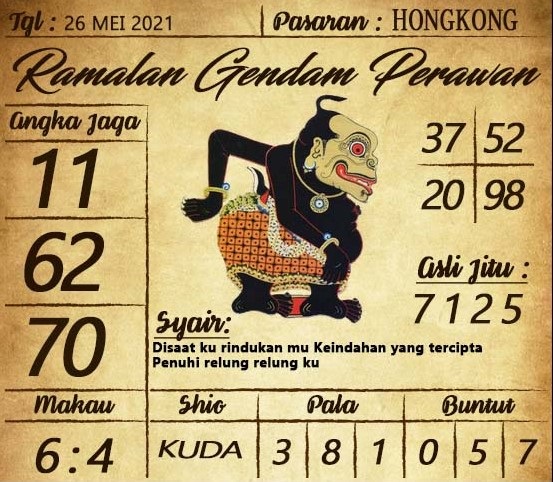 Tgl : 26 MEI 2021
Pasaran : HONGKONG
Ramalan Gendam Perawan
Angka Jaga
11
62
70
37 52
20 98
Asli Jitu :
7 1 2 5
Syair:
Disaat ku rindukan mu Keindahan yang tercipta
Penuhi relung relung ku
Makau Shio Pala Buntut
6:4 KUDA 3 8 1 0 5 7